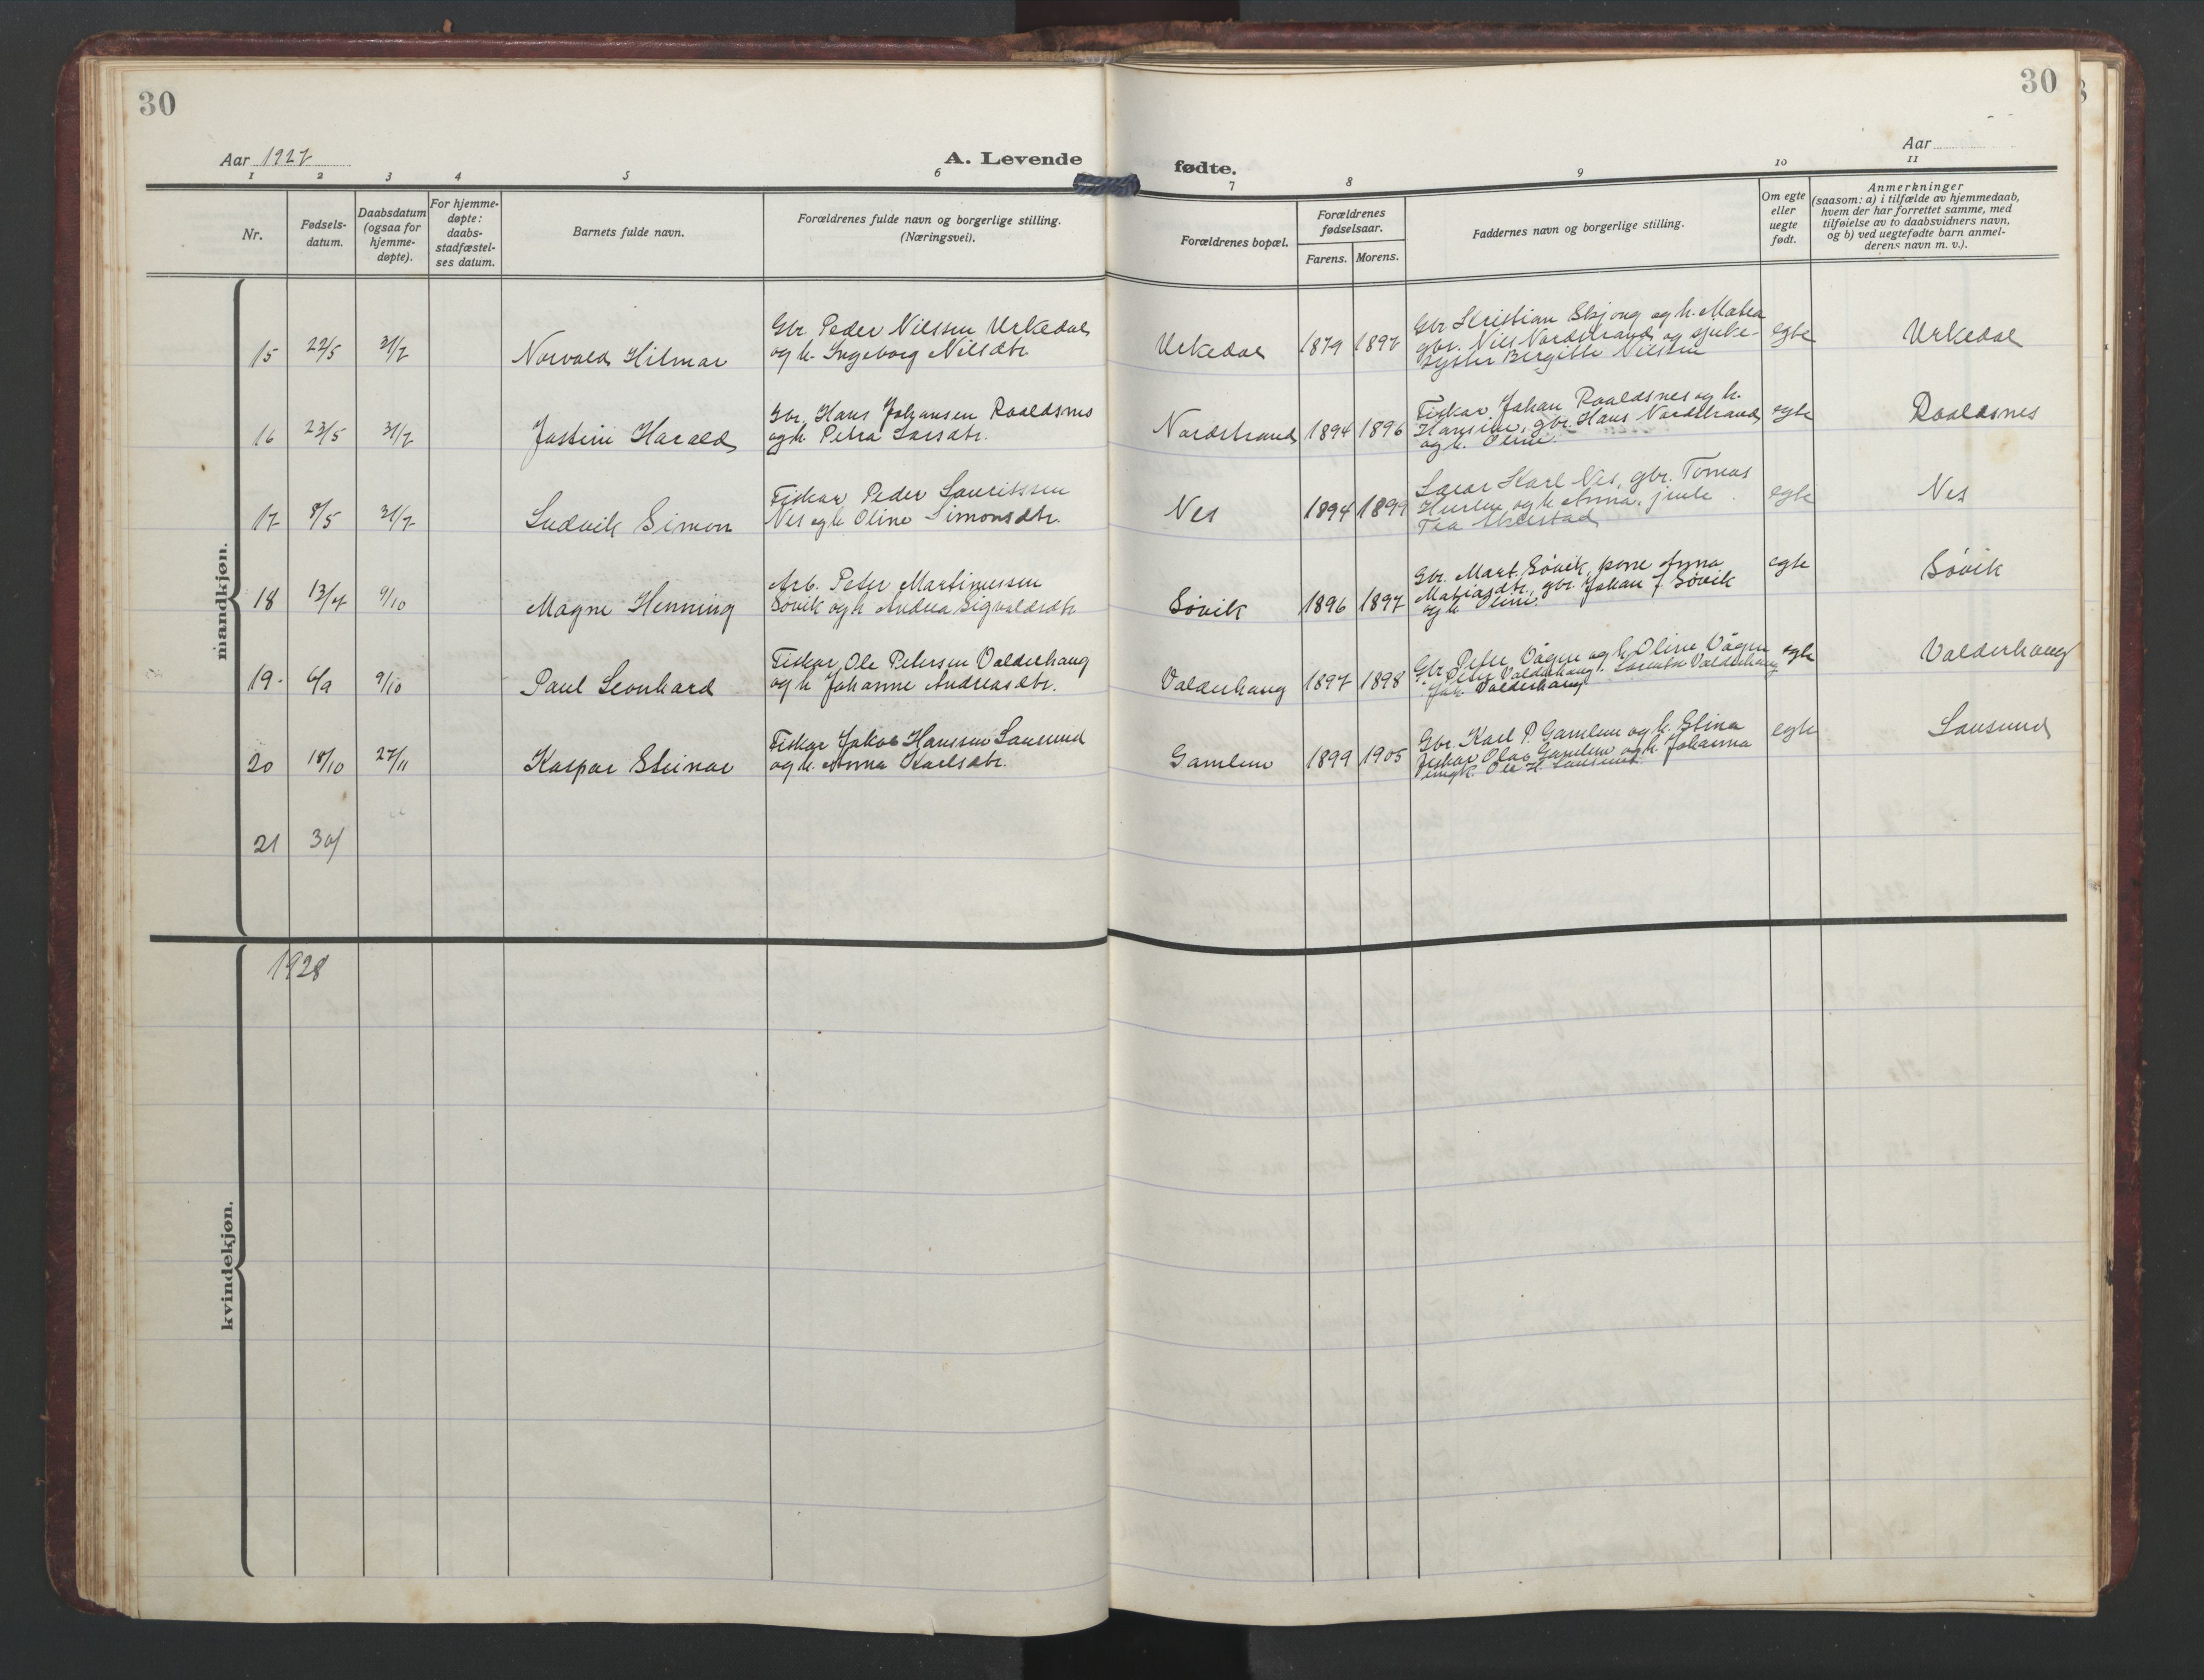 30
30
Aar 1927
A. Levende
fødte.
Aar
1 2 3 4 5 6 7 8 9 10 11
Nr.
Fødsels-
datum.
Daabsdatum
(ogsaa for
hjemme-
døpte).
For hjemme-
døpte:
daabs-
stadfæstel-
ses datum.
Barnets fulde navn.
Forældrenes fulde navn og borgerlige stilling.
(Næringsvei).
Forældrenes bopæl.
Forældrenes
fødselsaar.
Farens. Morens.
Faddernes navn og borgerlige stilling.
Om egte
eller
uegte
født.
Anmerkninger
(saasom: a) i tilfælde av hjemmedaab,
hvem der har forrettet samme, med
tilføielse av to daabsvidners navn,
og b) ved uegtefødte barn anmel-
derens navn m. v.).
mandkjøn.
15 22/5 31/7 Norvald Hilmar
Gbr. Peder Nilssen Urkedal
og h. Ingeborg Nilsdtr.
Urkedal 1879 1897
Gbr Kristian Skjong og h. Matea
gbr. Nils Nordstrand og sjuke-
syster Bergitte Nilssen
egte Urkedal
16 23/5 31/7 Jostein Harald
Gbr. Hans Johansen Roaldsnes
og h. Petra Larsdtr.
Nordstrand 1894 1896
Fiskar Johan Roaldsnes og h.
Hansine, gbr. Hans Nordstrand
og h. Oline
egte Roaldsnes
17 8/5 31/7 Ludvik Simon
Fiskar Peder Lauritssen
Nes og h. Oline Simonsdtr.
Nes 1894 1899
Lærar Karl Nes, gbr. Tomas
og h. Anna, jente
egte Nes
18 13/7 9/10 Magne Henning
Arb. Peter Martinussen
Søvik og h. Andrea Sigvaldsdtr
Søvik 1896 1897
Gbr. Mart. Søvik, pene Anna
Matiasdtr, gbr. Johan J. Søvik
og h. Oline
egte Søvik
19 6/9 9/10 Paul Leonhard
Fiskar Ole Petersen Valderhaug
og h. Johanne Andreasdtr.
Valderhaug 1897 1898
Gbr. Peter Vågen og h. Oline Vågen
Peter Valderhaug. Laurentse Valderhaug
Joh. Valderhaug
egte Valderhaug
20 18/10 27/11 Kaspar Steinar
Fiskar Jakob Hanssen Lausund
og h. Anna Karlsdtr.
Gamlem 1899 1905
Gbr. Karl P. Gamlem og h. Elina
Fiskar Olav Gamlem og h. Johanna
ungk. Ole H. Lausund
egte Lausund
21 30/
kvindekjøn.
1928